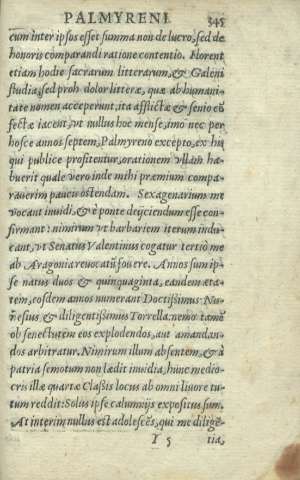 PALMYRENI. 345
cum inter ipsos esset summa non de lucro, sed de
honoris comparandi ratione contentio. Florent
etiam hodie sacrarum litterarum, & Galeni
studia, sed proh dolor litteræ, quæ ab humani-
tate nomen acceperunt, ita afflictæ & senio cō
fectæ iacent, vt nullus hoc mense, imo nec per
hosce annos septem, Palmyreno excepto, ex his
qui publice profitentur, orationem vllam ha-
buerit quale vero inde mihi præmium compa-
rauerim paucis ostendam. Sexagenarium me
vocant inuidi, & è ponte deijciendum esse con-
firmant: nimirum vt barbariem iterum indu-
cant, vt Senatus Valentinus cogatur tertiò me
ab Aragonia reuocatū fouere. Annos sum ip-
se natus duos & quinquaginta, eandem æta-
tem, eosdem annos numerant Doctissimus Nu-
ñesius, & diligentissimus Torrella: nemo tamē
ob senectutem eos explodendos, aut amandan-
dos arbitratur. Nimirum illum absentem, & à
patria semotum non lædit inuidia, hunc medio-
cris illæ quartæ Classis locus ab omni liuore tu-
tum reddit: Solus ipse calumnijs expositus sum.
At interim nullus est adolescēs, qui me diligē-
Y 5 tia,